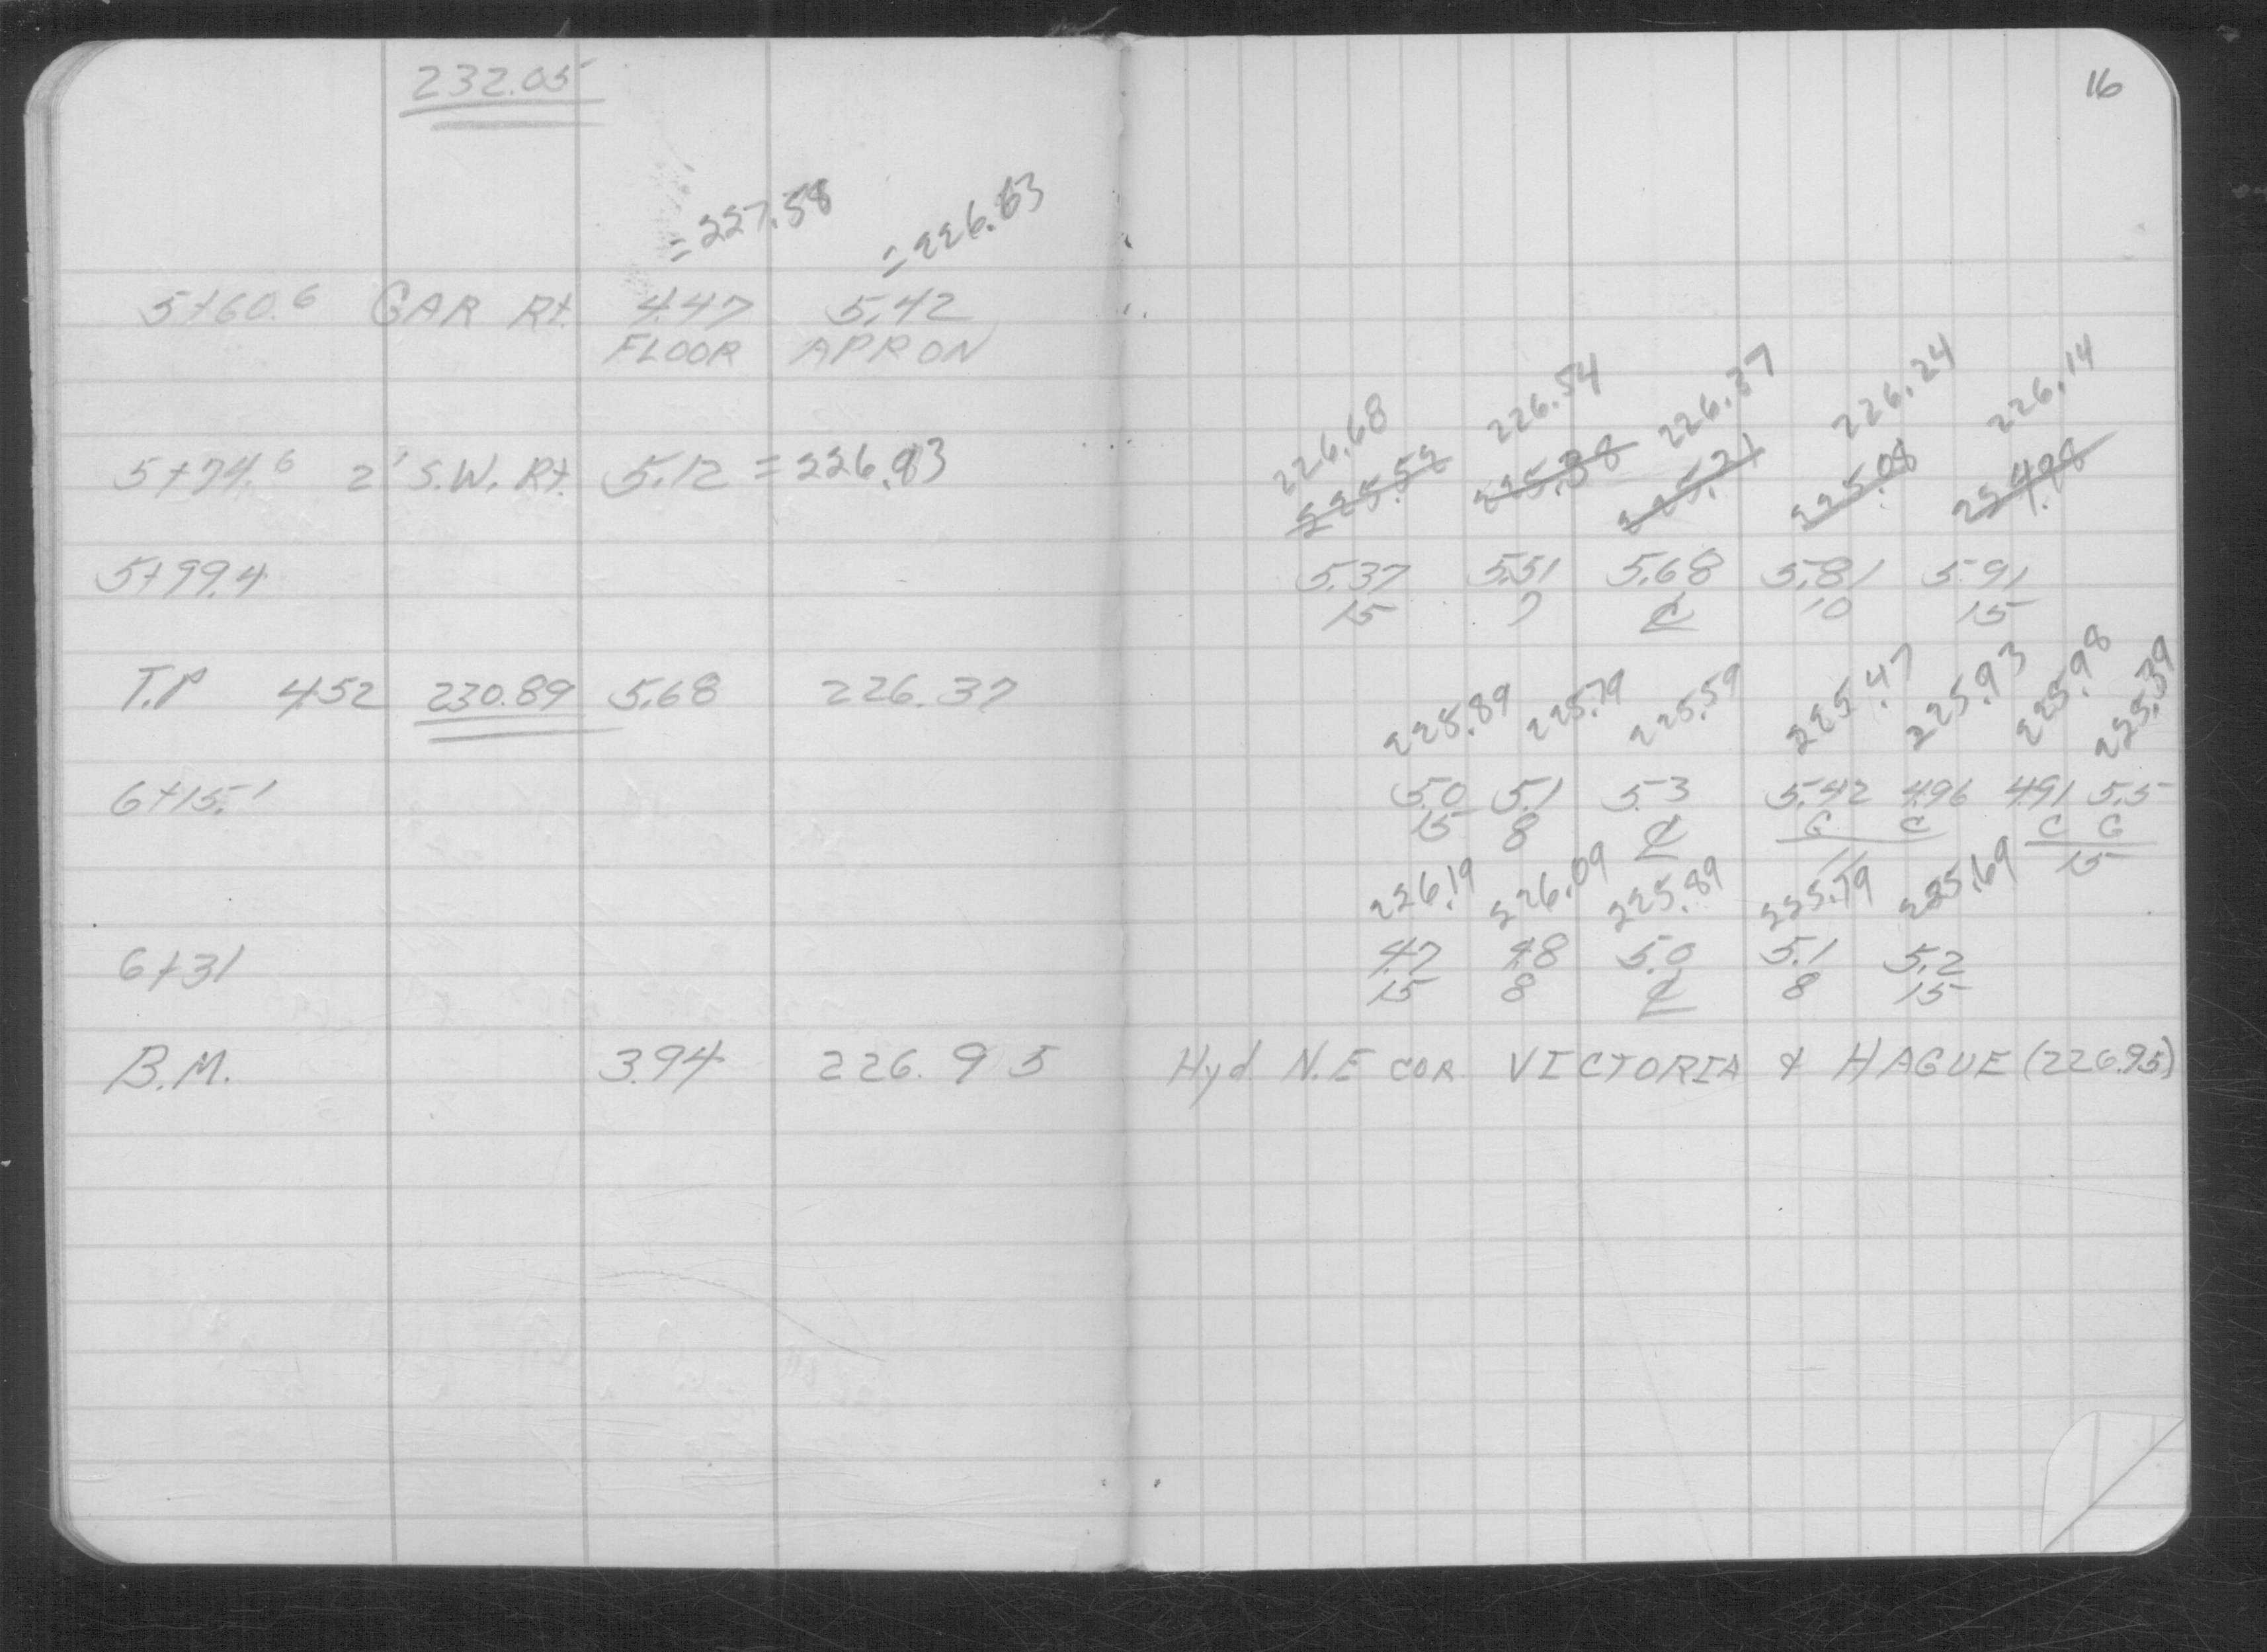 232.05
16
= 227.58 = 226.63
5+60.6 GAR Rt. 4.47 5.42
FLOOR APRON
226.68 226.54 226.37 226.24 226.14
5+74.6 2' S.W. Rt. 5.12 = 226.93
225.52 225.38 225.21 225.08 224.98
5+99.4 5.37 5.51 5.68 5.81 5.91
15 7 ℄ 10 15
T.P 4.52 230.89 5.68 226.37
225.89 225.79 225.59 225.47 225.93 225.98 225.39
6+15.1 5.0 5.1 5.3 5.42 4.96 4.91 5.5
15 8 ℄ G C C G
11 15
226.19 226.09 225.89 225.79 225.69
6+31 4.7 4.8 5.0 5.1 5.2
15 8 ℄ 8 15
B.M. 3.94 226.95 Hyd. N.E COR. VICTORIA & HAGUE (226.95)